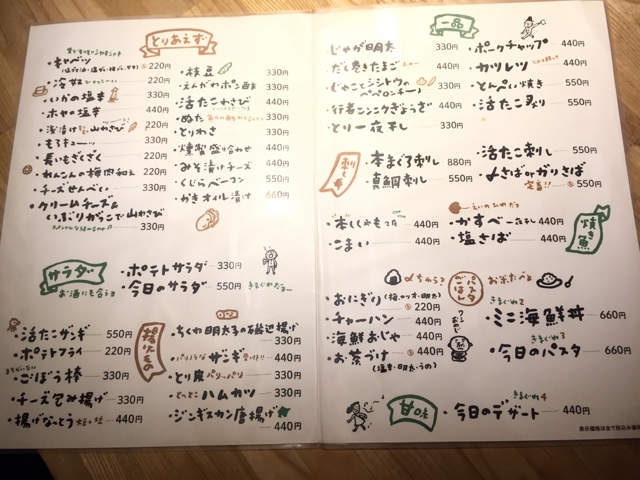 とりあえず
・キャベツ 220円
・冷奴 220円
・いかの塩辛 330円
・ホヤの塩辛 440円
・浅漬け 山わさび 220円
・もろキュー 330円
・長いもざくざく 220円
・れんこんの梅肉和え 220円
・チーズせんべい 330円
・クリームチーズ&
いぶりがっこで山わさび 330円
・枝豆 330円
・えんがわポン酢 330円
・活たこわさび 440円
・ぬた 330円
・とりわさ 330円
・燻製盛り合わせ 440円
・みそ漬けチーズ 440円
・くじらベーコン 550円
・かきオイル漬け 660円
サラダ
お酒にも合うョ
・ポテトサラダ 330円
・今日のサラダ 550円
・活たこザンギ 550円
・ポテトフライ 220円
・ごぼう棒 330円
・チーズ包み揚げ 330円
・揚げなっとう 440円
揚げもの
・ちくわ明太子の磯辺揚げ 330円
・ザンギ 330円
・とり皮パリッパリ 330円
・ハムカツ 330円
・ジンギスカン唐揚げ 440円
一品
・じゃが明太 330円
・だし巻きたまご 440円
・じゃことシシトウの
ペペロンチーノ 440円
・行者ニンニクぎょうざ 440円
・とり一夜干し 330円
・ポークチャップ 440円
・カツレツ 440円
・とんぺい焼き 550円
・活たこ炙り 550円
刺し身
・本まぐろ刺し 880円
・真鯛刺し 550円
・活たこ刺し 550円
・〆さばorガリさば 550円
・本ししゃも 440円
・こまい 440円
・かすべ一夜干し 440円
・塩さば 440円
焼き魚
パスタ
ごはん
お米たべョ
・おにぎり(梅,カツオ・明太) 220円
・チャーハン 440円
・海鮮おじや 440円
・お茶づけ 440円
(塩辛・明太・うめ)
・ミニ海鮮丼 660円
・今日のパスタ 660円
甘味
・今日のデザート 440円